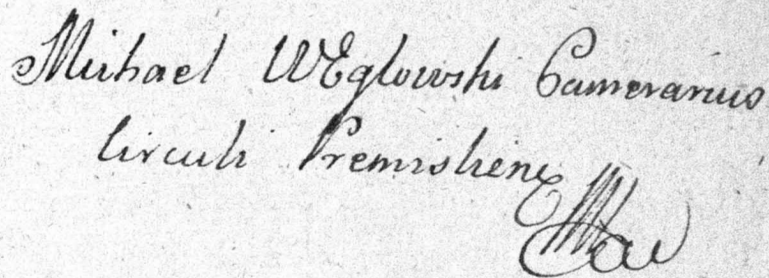 Michael WEglowski Camerarius
Circuli Premislien